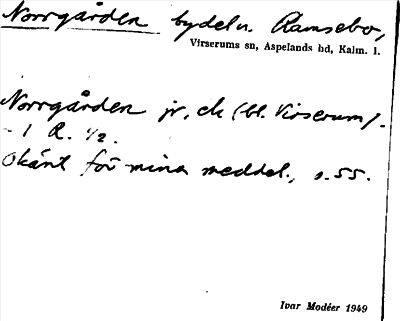 Norrgården bydel n. Ramsebo,
Virserums sn, Aspelands hd, Kalm. l.
Norrgården jr, ek (bl. Virserum).
- 1 R. 1/2.
Okänt för mina meddel., s. 55.
Ivar Modéer 1949